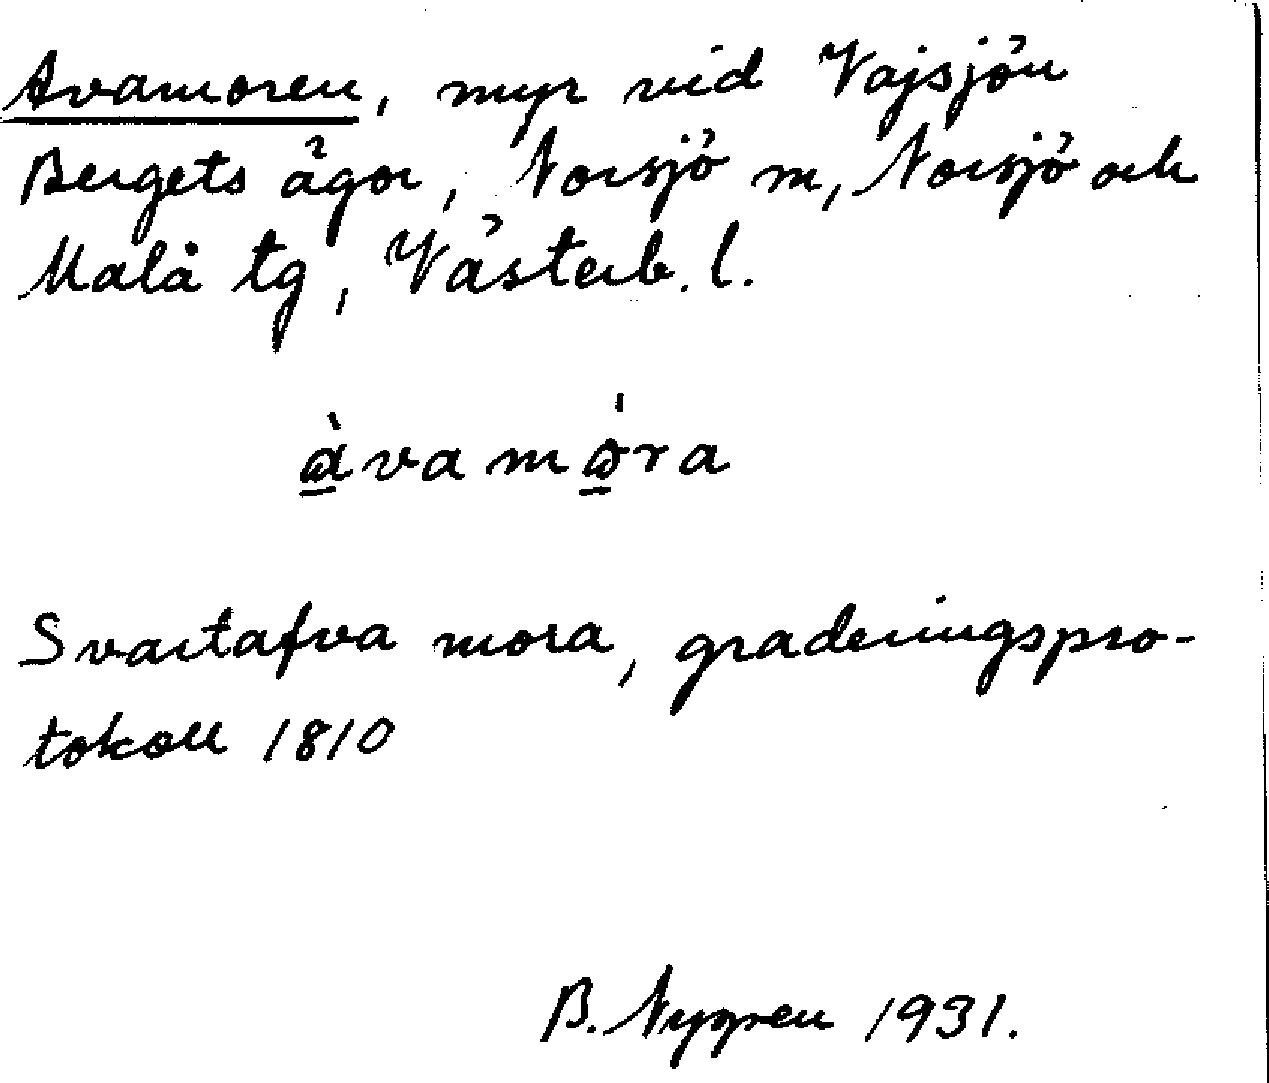 Avamoren, myr vid Vajsjön
Bergets ägor, Norsjö m, Norsjö och
Malå tg, Västerb. l.
àvamóra
Svartafva mora, graderingspro-
tokoll 1810
B. Nygren 1931.